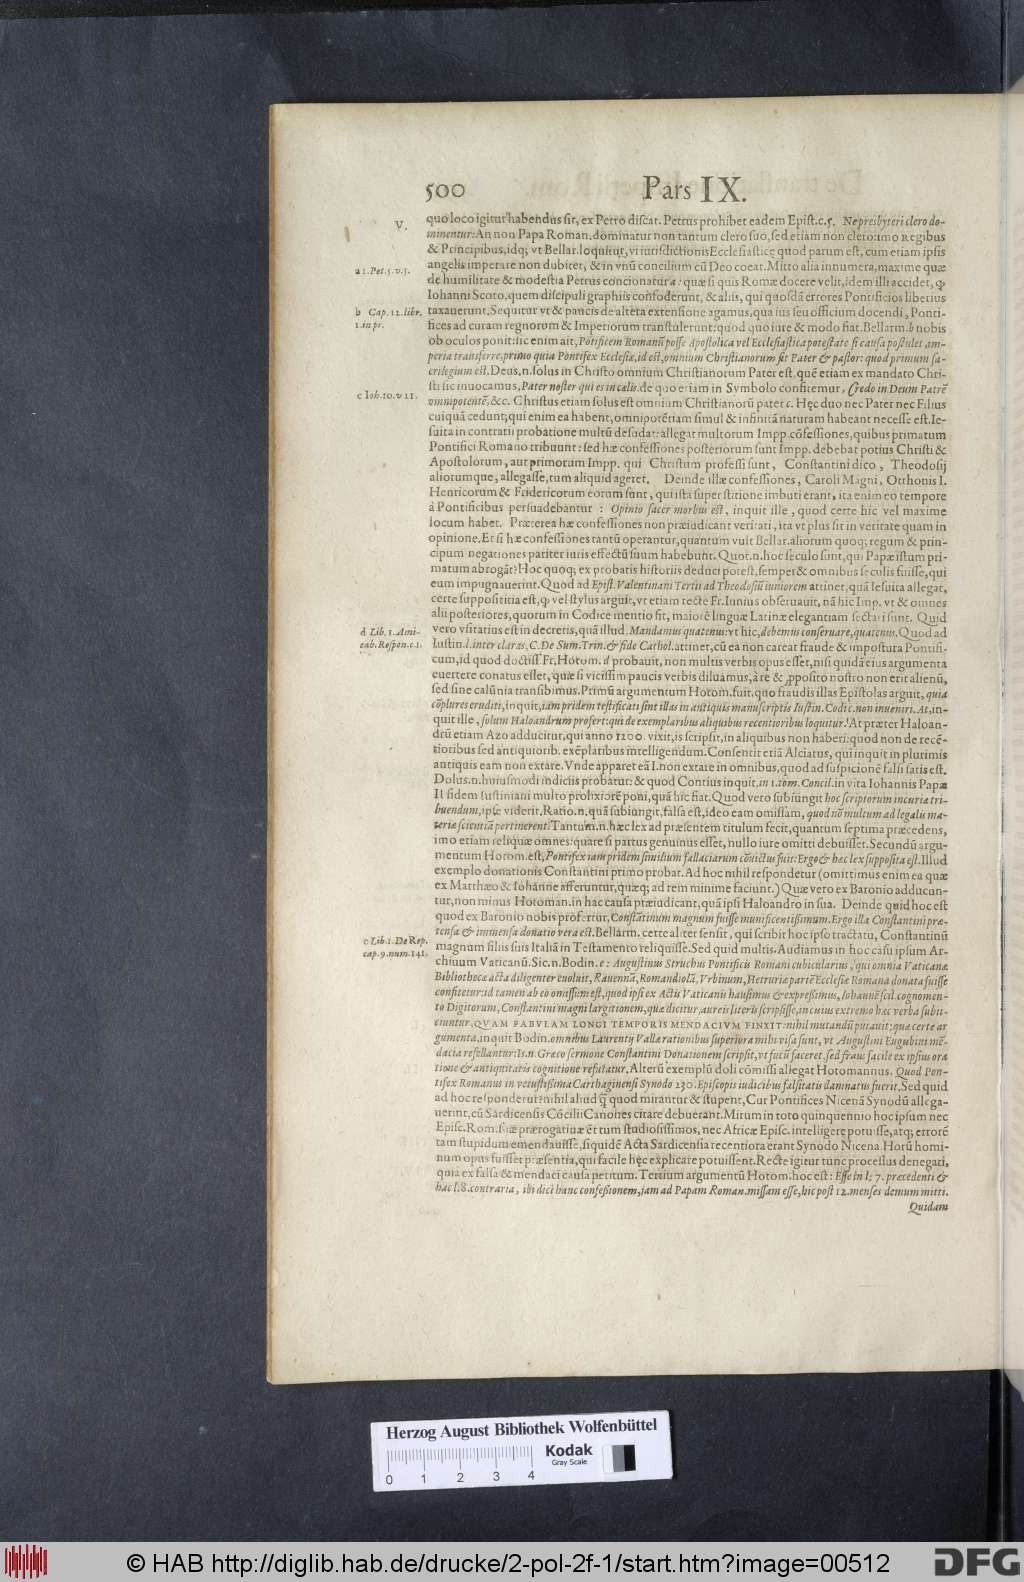 500 Pars IX.
V.
quo loco igitur habendus sit, ex Petro discat. Petrus prohibet eadem Epist. c. 5. Ne presbyteri clero do-
minentur: An non Papa Roman. dominatur non tantum clero suo, sed etiam non clero: imo Regibus
& Principibus, idq; vt Bellar. loquitur, vi iurisdictionis Ecclesiasticę quod parum est, cum etiam ipsis
a 1. Pet. 5. v. 5.
angelis imperare non dubitet, & in vnū concilium cū Deo coeat. Mitto alia innumera, maxime quæ
de humilitate & modestia Petrus concionatur a: quæ si quis Romæ docere velit, idem illi accidet, q̇
Iohanni Scoto, quem discipuli graphiis confoderunt, & aliis, qui quosdā errores Pontificios liberius
b Cap. 12. libr.
1. in pr.
taxauerunt. Sequitur vt & paucis de altera extensione agamus, qua ius seu officium docendi, Ponti-
fices ad curam regnorum & Imperiorum transtulerunt: quod quo iure & modo fiat. Bellarm. b nobis
ob oculos ponit: sic enim ait, Pōtificem Romanū posse Apostolica vel Ecclesiastica potestate si causa postulet, im-
peria transferre, primo quia Pontifex Ecclesiæ, id est, omnium Christianorum sit Pater & pastor: quod primum sa-
crilegium est. Deus, n. solus in Christo omnium Christianorum Pater est. quē etiam ex mandato Chri-
sti sic inuocamus, Pater noster qui es in cælis. de quo etiam in Symbolo confitemur, Credo in Deum Patrē
c Ioh. 10. v 11.
omnipotentē, &c. Christus etiam solus est omnium Christianorū pater c. Hęc duo nec Pater nec Filius
cuiquā cedunt; qui enim ea habent, omnipotētiam simul & infinitā naturam habeant necesse est. Ie-
suita in contrarii probatione multū desudat: allegat multorum Impp. cōfessiones, quibus primatum
Pontifici Romano tribuunt: sed hæ confessiones posteriorum sunt Impp. debebat potius Christi &
Apostolorum, aut primorum Impp. qui Christum professi sunt, Constantini dico, Theodosij
aliorumque, allegasse, tum aliquid ageret. Deinde illæ confessiones, Caroli Magni, Otthonis I.
Henricorum & Fridericorum eorum sunt, qui ista superstitione imbuti erant, ita enim eo tempore
à Pontificibus persuadebantur: Opinio sacer morbus est, inquit ille, quod certe hic vel maxime
locum habet. Præterea hæ confessiones non præiudicant veritati, ita vt plus sit in veritate quam in
opinione. Et si hæ confessiones tantū operantur, quantum vult Bellar. aliorum quoq; regum & prin-
cipum negationes pariter iuris effectū suum habebunt. Quot. n. hoc seculo sunt, qui Papæ istum pri-
matum abrogāt? Hoc quoq; ex probatis historiis deduci potest, semper & omnibus seculis fuisse, qui
eum impugnauerint. Quod ad Epist. Valentinani Tertii ad Theodosiū iuniorem attinet, quā Iesuita allegat,
certe supposititia est, q̇ vel stylus arguit, vt etiam recte Fr. Iunius obseruauit, nā hic Imp. vt & omnes
alii posteriores, quorum in Codice mentio fit, maiorē linguæ Latinæ elegantiam sectati sunt. Quid
d Lib. 1. Ami-
cab. Respon. c. 1.
vero vsitatius est in decretis, quā illud, Mandamus quatenus: vt hic, debemus conseruare, quatenus. Quod ad
Iustin. l. inter claras, C. De Sum. Trin. & fide Cathol. attinet, cū ea non careat fraude & impostura Pontifi-
cum, id quod doctiss. Fr. Hotom. d probauit, non multis verbis opus esset, nisi quidā eius argumenta
euertere conatus esset, quæ si vicissim paucis verbis diluamus, à re & ꝓposito nostro non erit alienū,
sed sine calūnia transibimus. Primū argumentum Hotom. fuit. quo fraudis illas Epistolas arguit, quia
cōplures eruditi, inquit, iam pridem testificati sint illas in antiquis manuscriptis Iustin. Codic. non inueniri. At, in-
quit ille, solum Haloandrum profert: qui de exemplaribus aliquibus recentioribus loquitur. At præter Haloan-
drū etiam Azo adducitur, qui anno 1200. vixit, is scripsit, in aliquibus non haberi: quod non de recē-
tioribus sed antiquiorib. exēplaribus intelligendum. Consentit etiā Alciatus, qui inquit in plurimis
antiquis eam non extare. Vnde apparet eā l. non extare in omnibus, quod ad suspicionē falsi satis est.
Dolus. n. huiusmodi indiciis probatur: & quod Contius inquit, in 1. tom. Concil. in vita Iohannis Papæ
II. fidem Iustiniani multo prolixiorē poni, quā hic fiat. Quod vero subiungit hoc scriptorum incuria tri-
buendum, ipse viderit. Ratio. n. quā subiungit, falsa est, ideo eam omissam, quod nō multum ad legalē ma-
teriæ scientiā pertinerent. Tantum. n. hæc lex ad præsentem titulum fecit, quantum septima præcedens,
imo etiam reliquæ omnes: quare si partus genuinus esset, nullo iure omitti debuisset. Secundū argu-
mentum Hotom. est, Pontifex iam pridem similium fallaciarum cōuictus fuit: Ergo & hac lex supposita est. Illud
exemplo donationis Constantini primo probat. Ad hoc nihil respondetur (omittimus enim ea quæ
ex Matthæo & Iohanne afferuntur, quæq; ad rem minime faciunt.) Quæ vero ex Baronio adducun-
tur, non minus Hotoman. in hac causa præiudicant, quā ipsi Haloandro in sua. Deinde quid hoc est
quod ex Baronio nobis profertur, Constātinum magnum fuisse munificentissimum. Ergo illa Constantini præ-
e Lib. 1. De Rep.
cap. 9. num. 141.
tensa & immensa donatio vera est. Bellarm. certe aliter sensit, qui scribit hoc ipso tractatu, Constantinū
magnum filiis suis Italiā in Testamento reliquisse. Sed quid multis. Audiamus in hoc casu ipsum Ar-
chiuum Vaticanū. Sic. n. Bodin. e: Augustinus Struchus Pontificis Romani cubicularius, qui omnia Vaticanæ
Bibliothecæ acta diligenter euoluit, Rauennā, Romandiolā, Vrbinum, Hetruriæ partē Ecclesiæ Romana donata fuisse
confitetur: id tamen ab eo omissum est, quod ipsi ex Actis Vaticanis hausimus & expressimus, Iohannē scil. cognomen-
to Digitorum, Constantini magni largitionem, quæ dicitur, aureis literis scripsisse, in cuius extremo hæc verba subii-
ciuntur, QVAM FABVLAM LONGI TEMPORIS MENDACIVM FINXIT: nihil mutandū putauit: quæ certe ar
gumenta, inquit Bodin. omnibus Laurentij Vallæ rationibus superiora mihi visa sunt, vt Augustini Eugubini mē-
dacia refellantur: Is. n. Græco sermone Constantini Donationem scripsit, vt fucū faceret. sed fraus facile ex ipsius ora
tione & antiquitatis cognitione refutatur. Alterū exemplū doli cōmissi allegat Hotomannus. Quod Pon-
tifex Romanus in vetustissima Carthaginensi Synodo 230. Episcopis iudicibus falsitatis damnatus fuerit. Sed quid
ad hoc responderūt? nihil aliud q̃ quod mirantur & stupent, Cur Pontifices Nicenā Synodū allega-
uerint, cū Sardicensis Cōcilii Canones citare debuerant. Mirum in toto quinquennio hoc ipsum nec
Episc. Rom. suæ prærogatiuæ ēt tum studiosissimos, nec Africæ Episc. intelligere potuisse, atq; errorē
tam stupidum emendauisse, siquidē Acta Sardicensia recentiora erant Synodo Nicena. Horū homi-
num opus fuisset præsentia, qui facile hęc explicare potuissent. Recte igitur tunc processus denegati,
quia ex falsa & mendaci causa petitum. Tertium argumentū Hotom. hoc est: Esse in l. 7. præcedenti &
hac l. 8. contraria, ibi dici hanc confessionem, iam ad Papam Roman. missam esse, hic post 12. menses demum mitti.
Quidam
Herzog August Bibliothek Wolfenbüttel
Kodak
Gray Scale
0 1 2 3 4
© HAB http://diglib.hab.de/drucke/2-pol-2f-1/start.htm?image=00512
DFG